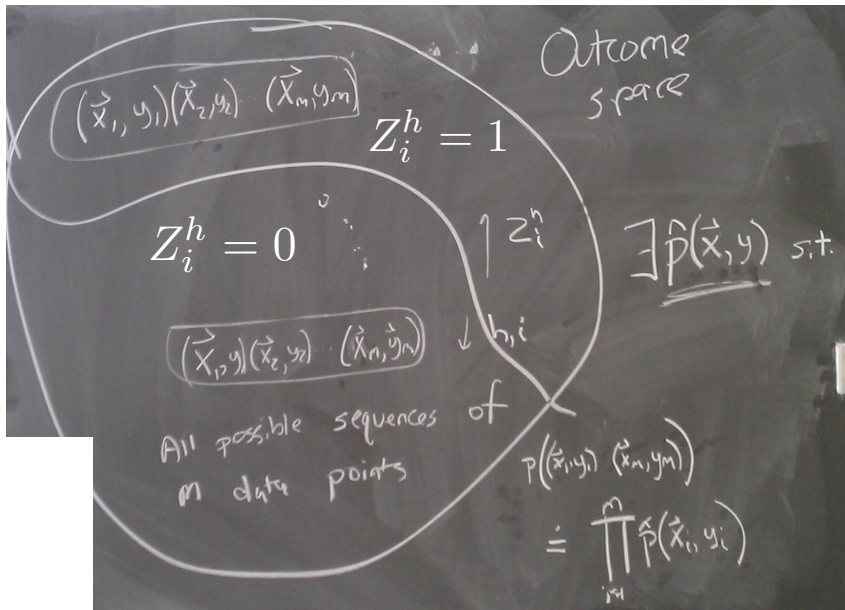 Outcome
space
(x⃗₁, y₁)(x⃗₂, y₂) ... (x⃗ₘ, yₘ)
Zᵢʰ = 1
Zᵢʰ = 0
↑ Zᵢʰ
∃ p̂(x⃗, y) s.t.
↓ h,i
(x⃗₁, y₁)(x⃗₂, y₂) ... (x⃗ₘ, yₘ)
All possible sequences of
m data points
p((x⃗₁, y₁) ... (x⃗ₘ, yₘ))
= ∏ᵢ₌₁ᵐ p̂(x⃗ᵢ, yᵢ)